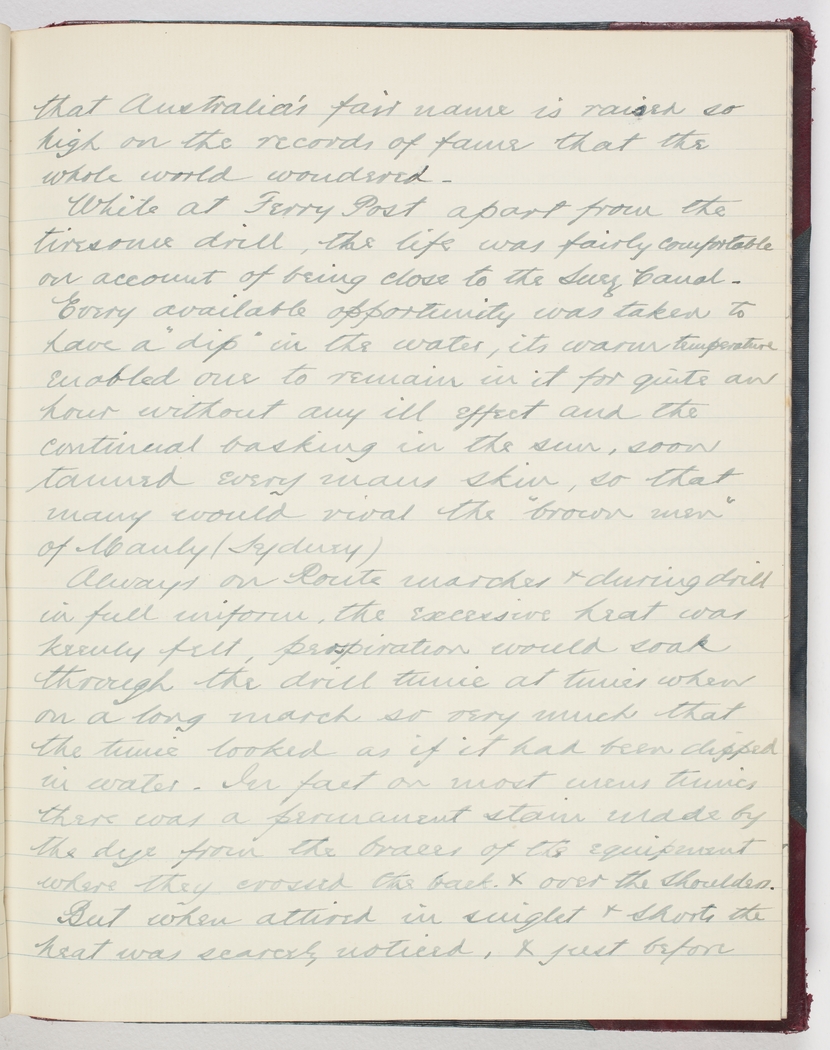 that Australia's fair name is raised so
high on the records of fame that the
whole world wondered -
While at Ferry Post apart from the
tiresome drill, the life was fairly comfortable
on account of being close to the Suez Canal -
Every available opportunity was taken to
have a "dip" in the water, its warm temperature
enabled one to remain in it for quite an
hour without any ill effect and the
continual basking in the sun, soon
tanned every mans skin, so that
many would rival the "brown men"
of Manly (Sydney)
Always on Route marches & during drill
in full uniform, the excessive heat was
keenly felt, perspiration would soak
through the drill tunic at times when
on a long march so very much that
the tunic looked as if it had been dipped
in water - In fact on most mens tunics
there was a permanent stain made by
the dye from the braces of the equipment
where they crossed the back. & over the shoulders.
But when attired in singlet & shorts the
heat was scarcely noticed, & just before